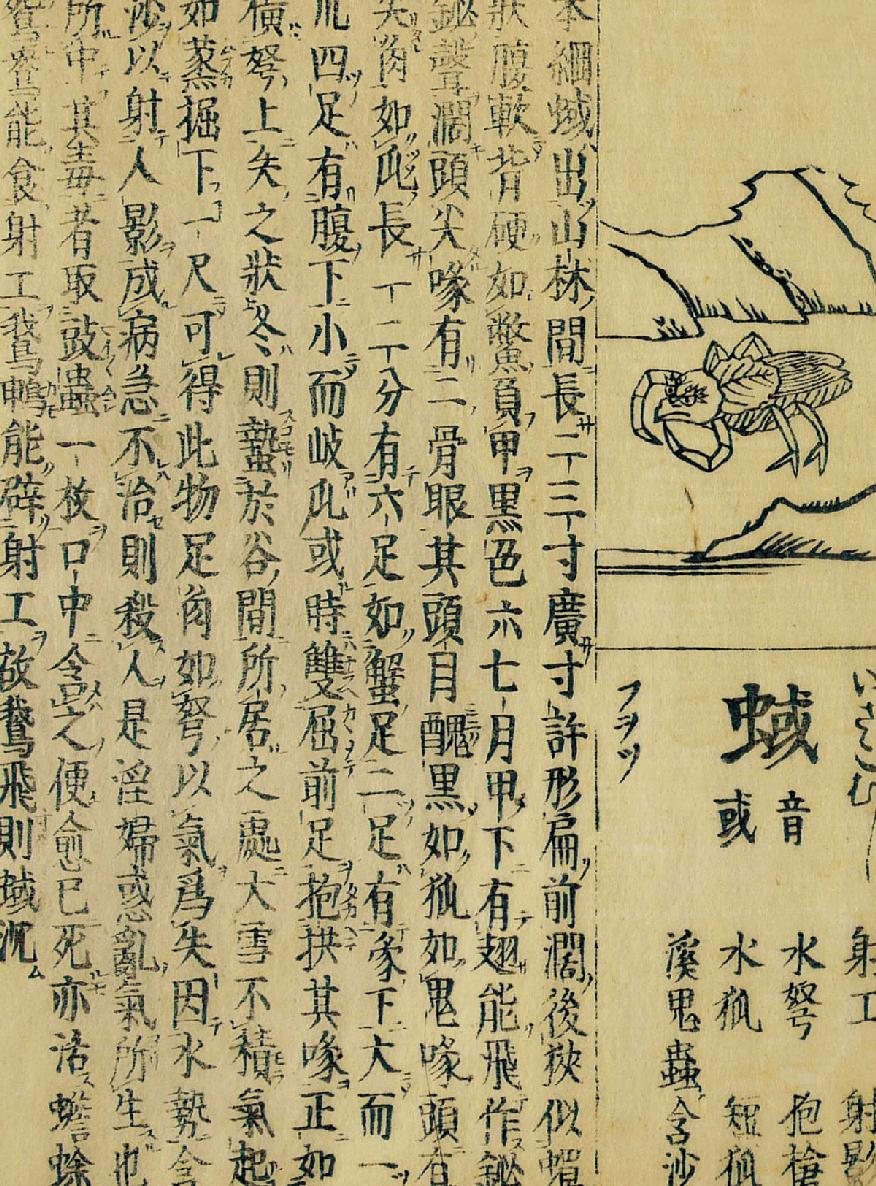 いさごむ
射工 射影
水弩 抱槍
蜮 音或
水狐 短狐
溪鬼蟲 含沙
フヲツ
本綱蜮出山林間長二三寸廣寸許形扁前濶後狹似蟬
狀腹軟背硬如鱉負甲黑色六七月甲下有翅能飛作鉍
鉍聲濶頭尖喙有二骨眼其頭目醜黑如狐如鬼喙頭有
尖角如爪長一二分有六足如蟹足二足有喙下大而一
爪四足有腹下小而岐爪或時雙屈前足抱拱其喙正如
橫弩上矢之狀冬則蟄於谷間所居之處大雪不積氣起
如蒸掘下一尺可得此物足角如弩以氣爲矢因水勢含
沙以射人影成病急不治則殺人是淫婦惑亂氣所生也
所中其毒者取豉蟲一枚口中含之便愈已死亦活蟾蜍
鴛鴦能食射工鵞鴨能辟射工故鵞飛則蜮沉